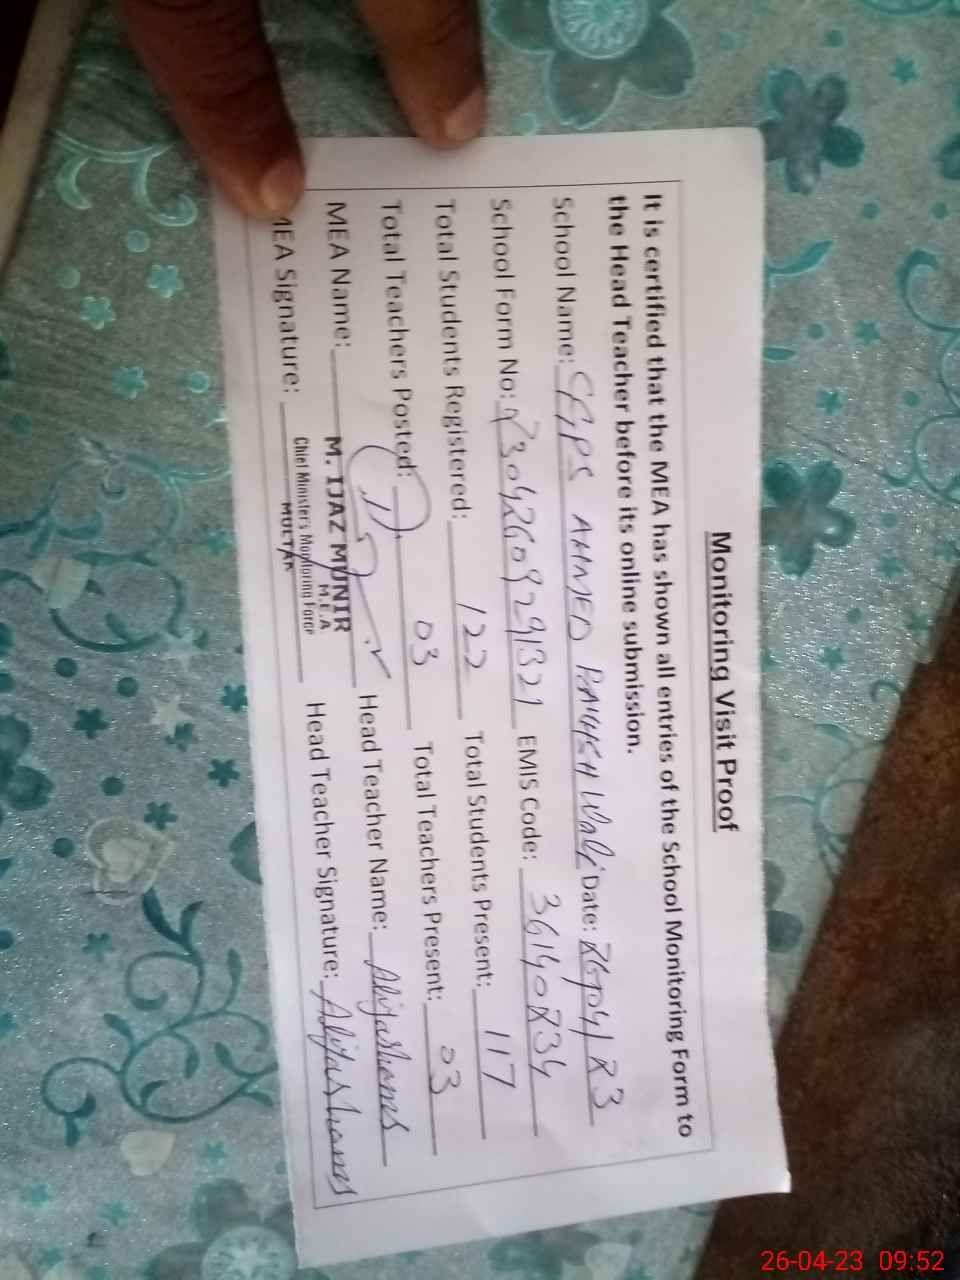 Monitoring Visit Proof
It is certified that the MEA has shown all entries of the School Monitoring Form to
the Head Teacher before its online submission.
School Name: GGPS AHMED Wali Date: 26/04/23
School Form No: 23042609291321 EMIS Code: 36140234
Total Students Registered: 122 Total Students Present: 117
Total Teachers Posted: 03 Total Teachers Present: 03
MEA Name: M. IJAZ MUNIR Head Teacher Name:
M.E.A
MEA Signature: Chief Minister's Monitoring Force Head Teacher Signature:
MULTAN
26-04-23 09:52